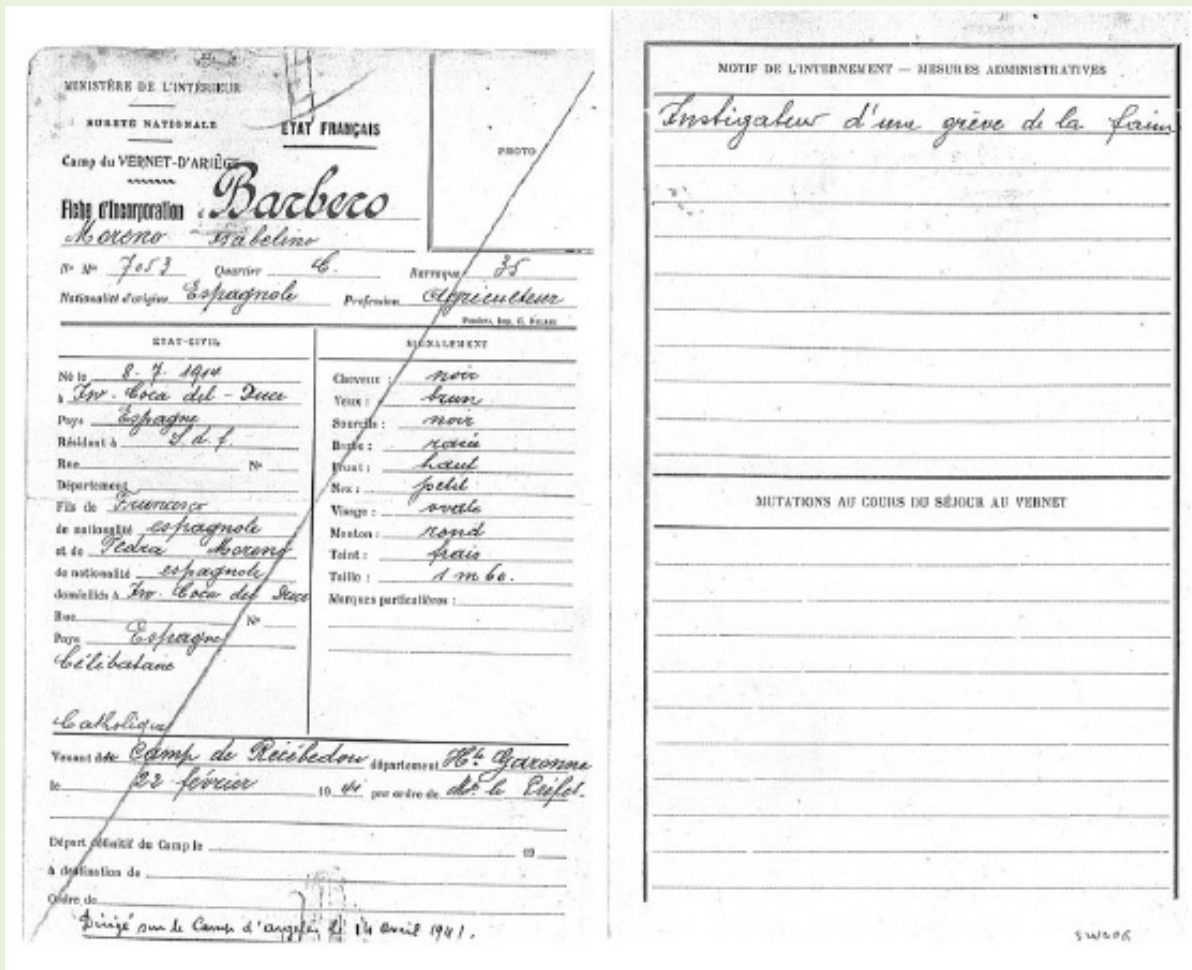 MINISTÈRE DE L'INTÉRIEUR
SURETÉ NATIONALE
ÉTAT FRANÇAIS
Camp du VERNET-D'ARIÈGE
PHOTO
Fiche d'Incorporation Barbero
Moreno
N° Mle 7053 Quartier C. Barraque 35
Nationalité d'origine Espagnole Profession Agriculteur
ÉTAT-CIVIL
Né le 8-7-1914
à Coca del
Pays Espagne
Résidant à S.d.f.
Rue N°
Département
Fils de
de nationalité espagnole
et de Pedra Moreno
de nationalité espagnole
domiciliés à Coca del
Rue N°
Pays Espagne
Célibataire
Catholique
SIGNALEMENT
Cheveux : noir
Yeux : brun
Sourcils : noir
Barbe : rasée
Front : haut
Nez : petit
Visage : ovale
Menton : rond
Teint : frais
Taille : 1 m 60.
Marques particulières :
Venant du Camp de Récébedou département Hte Garonne
le 22 février 19 41 par ordre de Mr le Préfet.
Départ définitif du Camp le 19
à destination de
Ordre de
Dirigé sur le Camp d'Argelès le 14 avril 1941.
MOTIF DE L'INTERNEMENT — MESURES ADMINISTRATIVES
Instigateur d'une grève de la faim
MUTATIONS AU COURS DU SÉJOUR AU VERNET